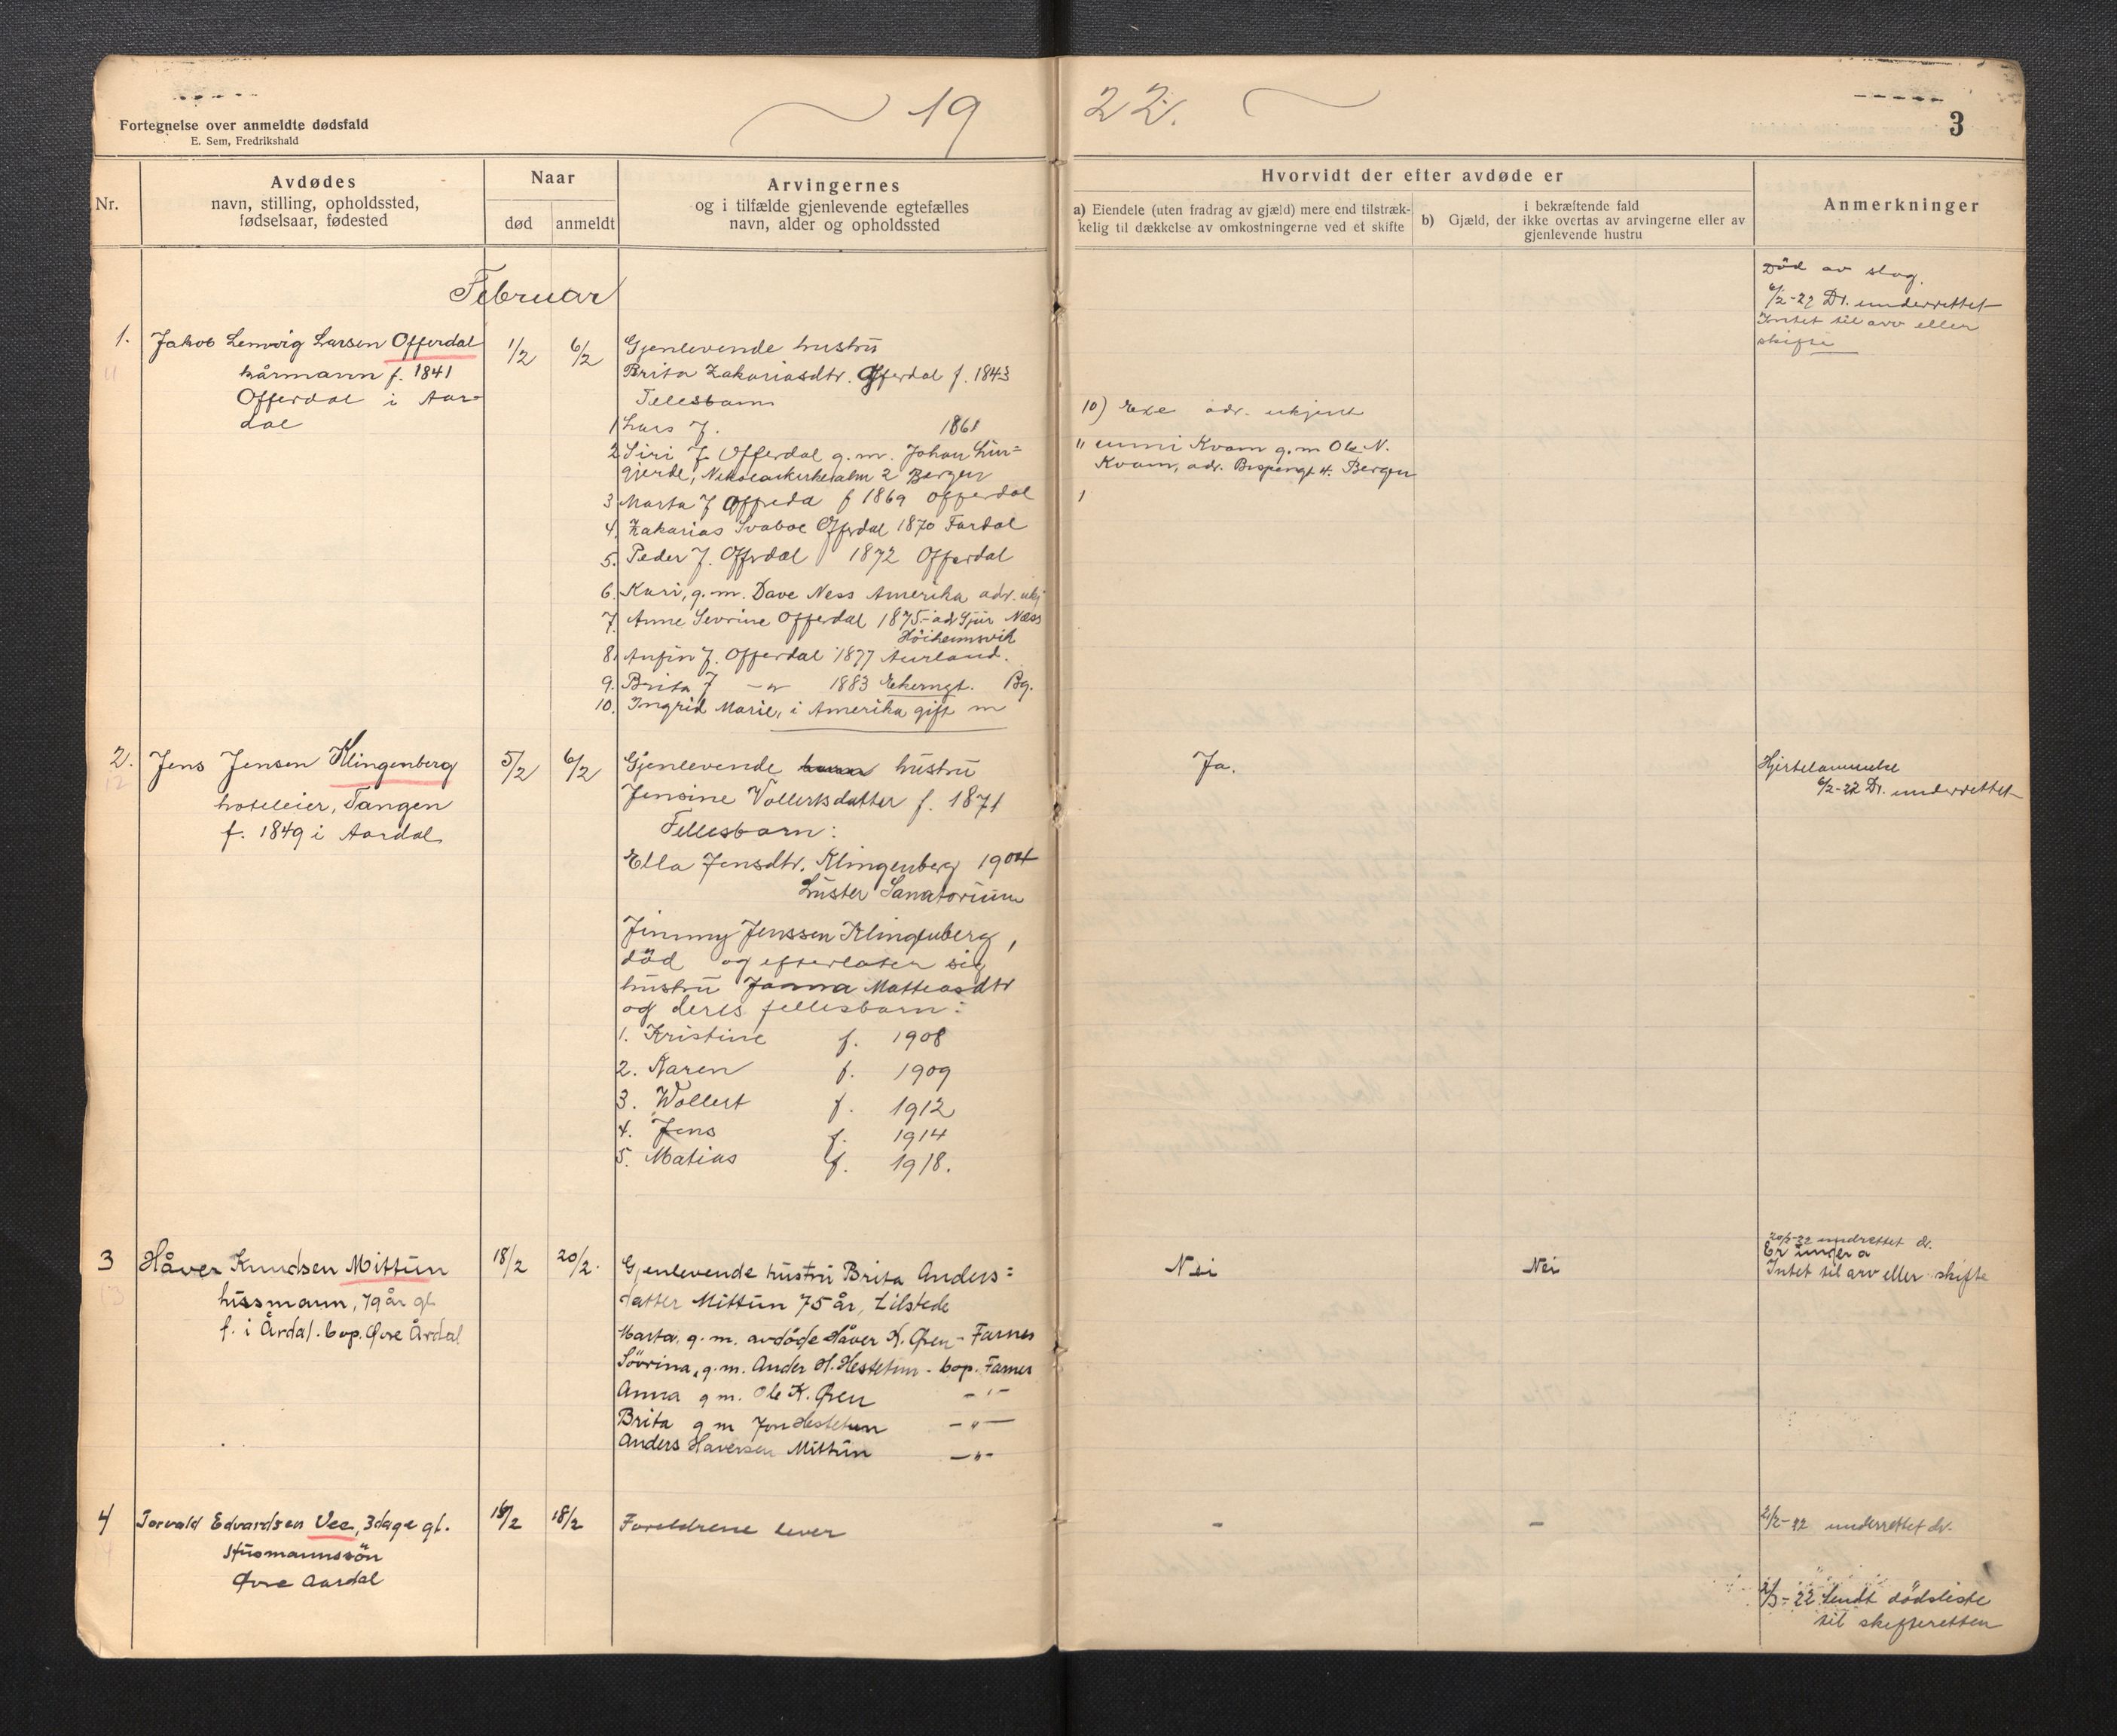 Fortegnelse over anmeldte dødsfald
E. Sem, Fredrikshald
19
22.
3
Nr.
Avdødes
navn, stilling, opholdssted,
fødselsaar, fødested
Naar
død
anmeldt
Arvingernes
og i tilfælde gjenlevende egtefælles
navn, alder og opholdssted
Hvorvidt der efter avdøde er
a) Eiendele (uten fradrag av gjæld) mere end tilstræk-
kelig til dækkelse av omkostningerne ved et skifte
i bekræftende fald
b) Gjæld, der ikke overtas av arvingerne eller av
gjenlevende hustru
Anmerkninger
Februar
1.
Jakob Lemvig Larsen Offerdal
kårmann f. 1841
Offerdal i Aar-
dal
1/2
6/2
Gjenlevende hustru
Brita Zakariasdtr. Offerdal f. 1843
Fellesbarn
1 Lars J. 1861
2 Siri J. Offerdal g.m. Johan Lin=
gjerde, Nikolaikirkealm 2 Bergen
3 Marta J Offerdal f 1869 Offerdal
4. Zakarias Svaboe Offerdal 1870 Fardal
5. Peder J. Offerdal 1872 Offerdal
6. Kari, g.m. Dave Ness Amerika adr. ukj
7. Anne Sevrine Offerdal 1875 - ad Sjur Næss
Höiheimsvik
8. Anfin J. Offerdal 1877 Aurland.
9. Brita J -"- 1883 Ekerngt. Bg.
10. Ingrid Marie, i Amerika gift m
10) Exe adr. ukjent
" Kvam g.m Ole N.
Kvam, adr. Bispengt 4. Bergen
Död av slag.
6/2-22 Dr. underrettet
Intet til arv eller
skifte
2.
12
Jens Jensen Klingenberg
hoteleier, Tangen
f. 1849 i Aardal
5/2
6/2
Gjenlevende hustru
Jensine Vollertsdatter f. 1871
Fellesbarn:
Ella Jensdtr. Klingenberg 1904
Luster Sanatorium
Jimmy Jenssen Klingenberg,
död og efterlater sig
hustru Janna Matteasdtr
og deres fellesbarn:
1. Kristine f. 1908
2. Karen f. 1909
3. Wollert f. 1912
4. Jens f. 1914
5. Matias f. 1918.
Ja.
Hjertelammelse
6/2-22 Dr. underrettet
3
13
Håver Knudsen Mittun
husmann, 79 år gl.
f. i Årdal. bop. Øvre Årdal
18/2
20/2.
Gjenlevende hustru Brita Anders=
datter Mittun 75 år, tilstede
Marta, g.m. avdöde Håver K. Øren - Farnes
Sövrina, g.m. Ander H. Hestetun - bop. Farnes
Anna gm. Ole K. Øren -"-
Brita gm Jon Hestetun -"-
Anders Haversen Mittun -"-
Nei
Nei
20/2-22 undrettet dr.
Intet til arv eller skifte
4
Torvald Edvardsen Vee, 3 dage gl.
Husmannssön
Øvre Aardal
16/2
18/2
Foreldrene lever
-
-
2/2-22 underrettet dr.
2/3-22 Sendt dödsliste
til skifteretten